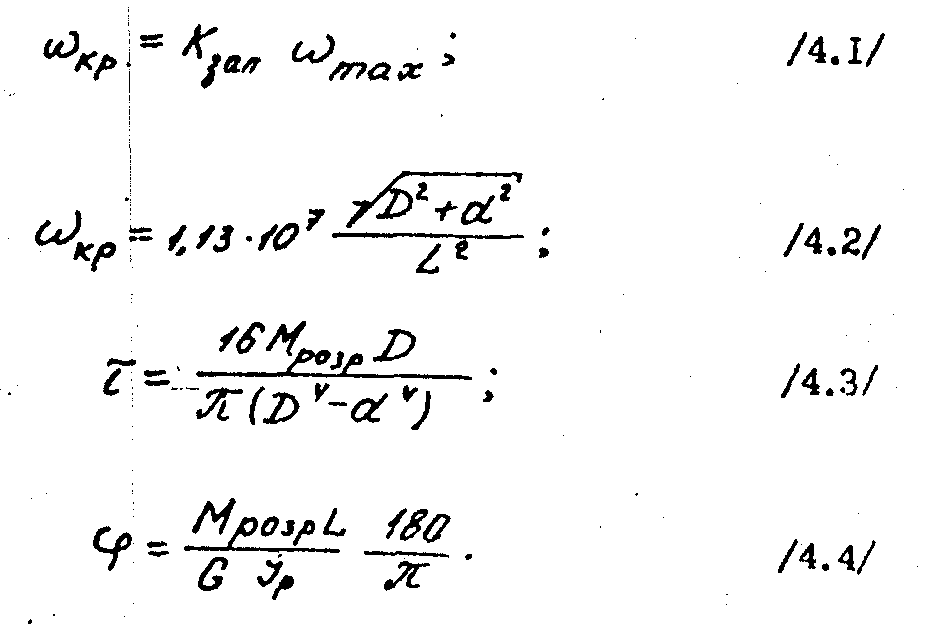 ω_кр = K_зап ω_max ; /4.I/
ω_кр = 1,13·10^7 √(D^2+d^2) / L^2 ; /4.2/
τ = 16 M_розр D / π (D^4 - d^4) ; /4.3/
φ = M_розр L / G J_р 180 / π . /4.4/